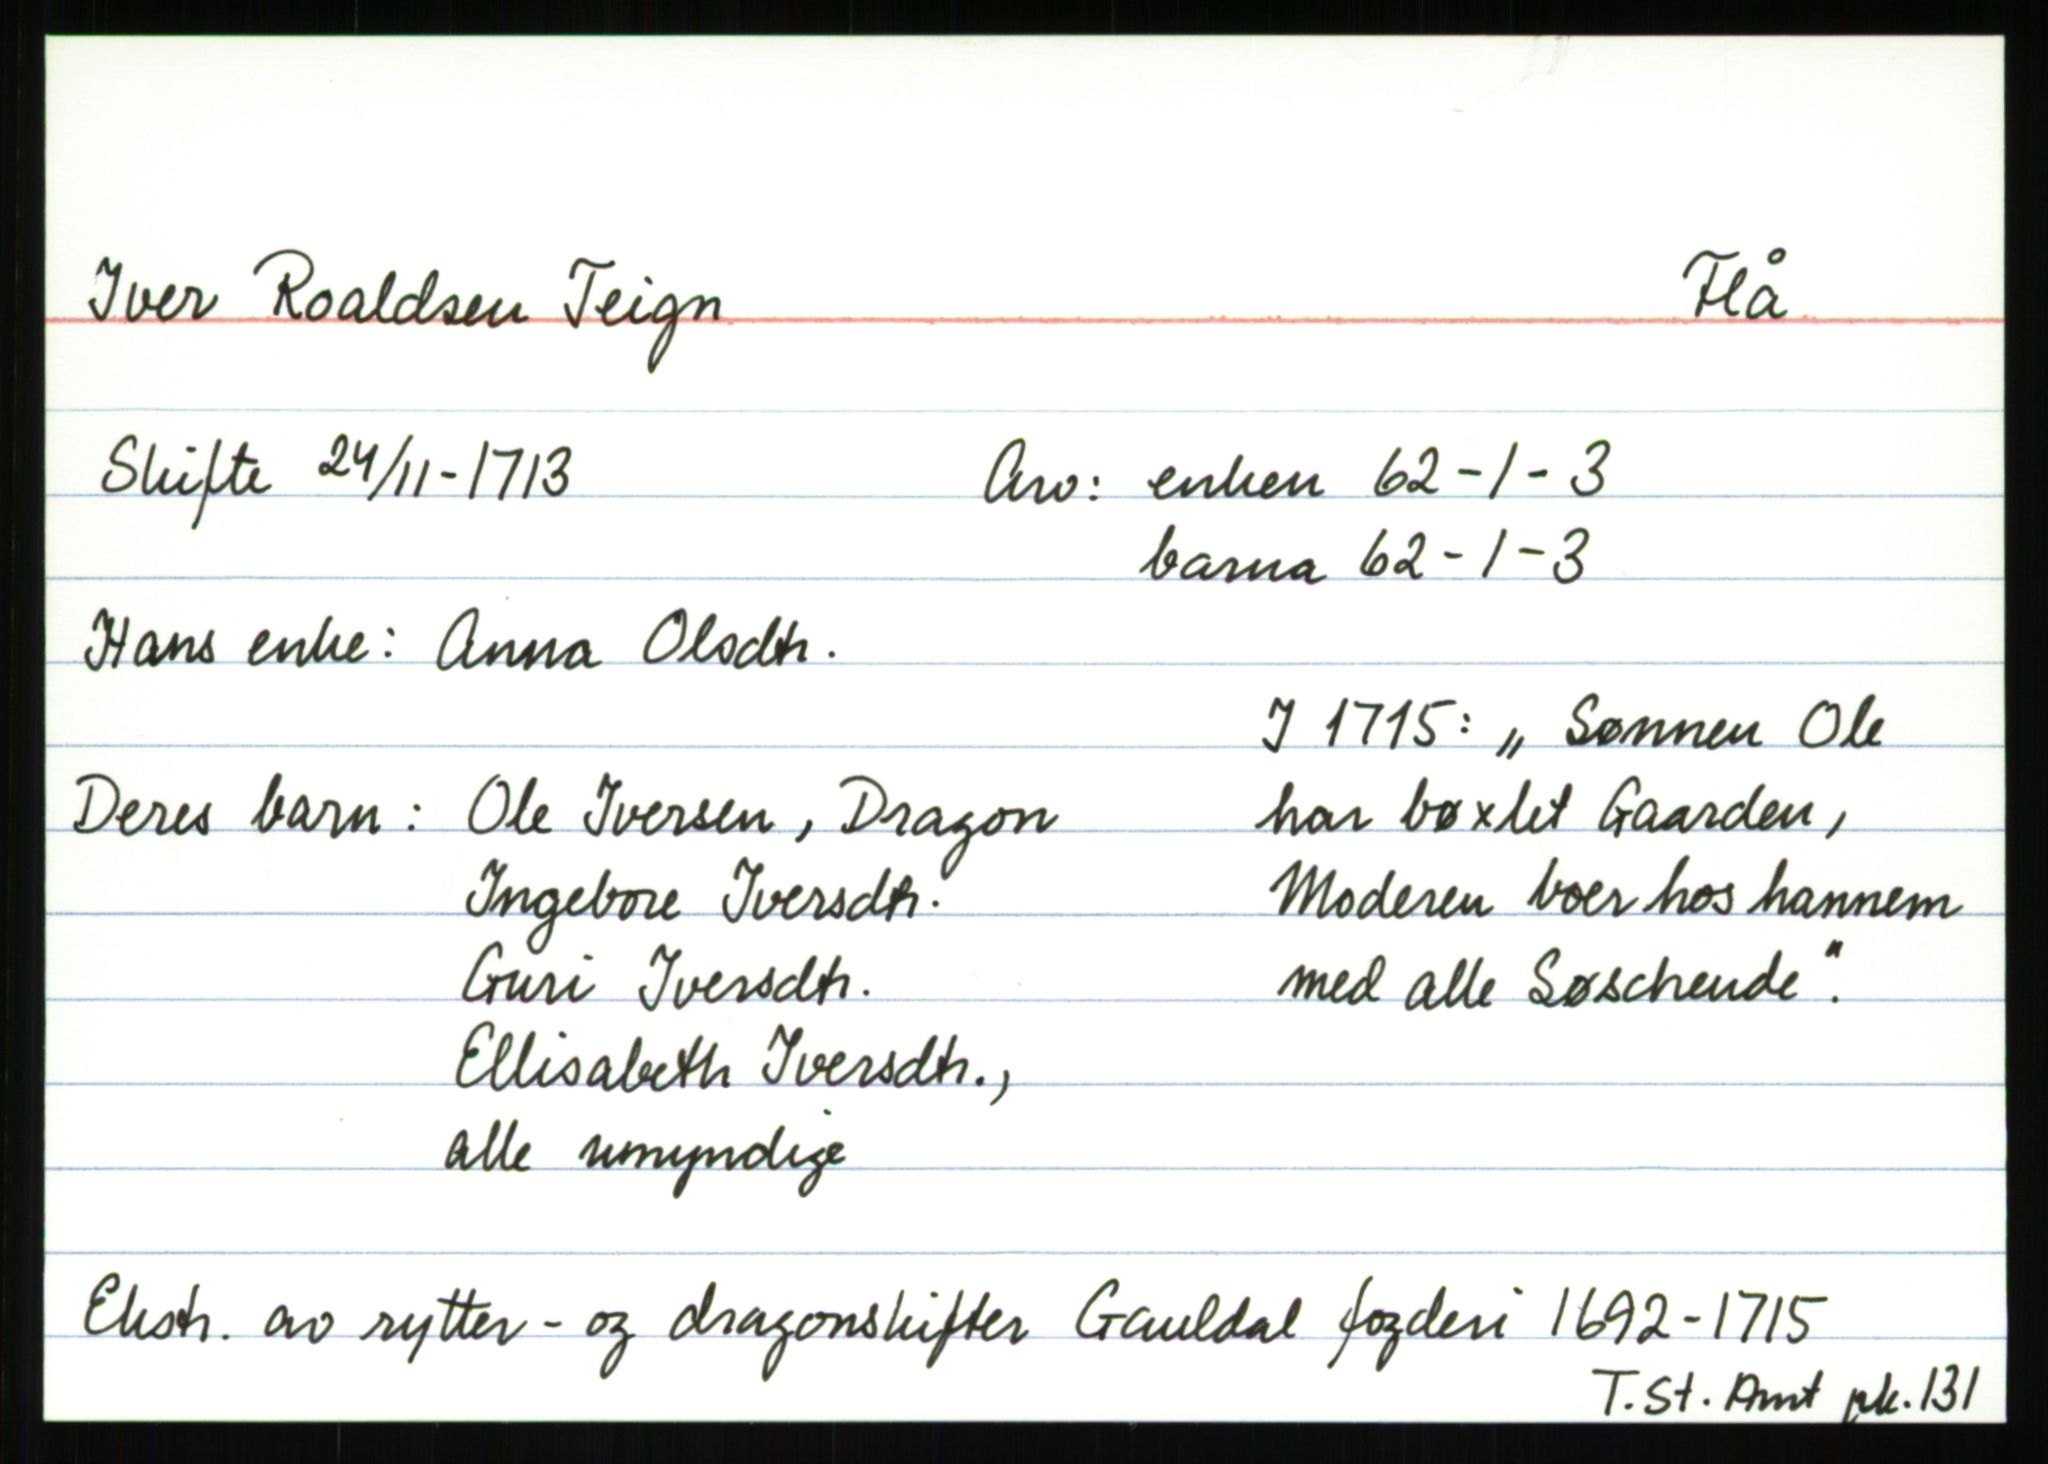 Iver Roaldsen Teign Flå
Skifte 24/11-1713 Arv: enken 62-1-3
barna 62-1-3
Hans enke: Anna Olsdtr.
I 1715: „Sønnen Ole
Deres barn: Ole Iversen, Dragon har bøxlet Gaarden,
Ingebore Iversdtr. Moderen boer hos hannem
Guri Iversdtr. med alle Søschende".
Ellisabeth Iversdtr.,
alle umyndige
Ekstr. av rytter- og dragonskifter Gauldal fogderi 1692-1715
T. St. Amt pk. 131